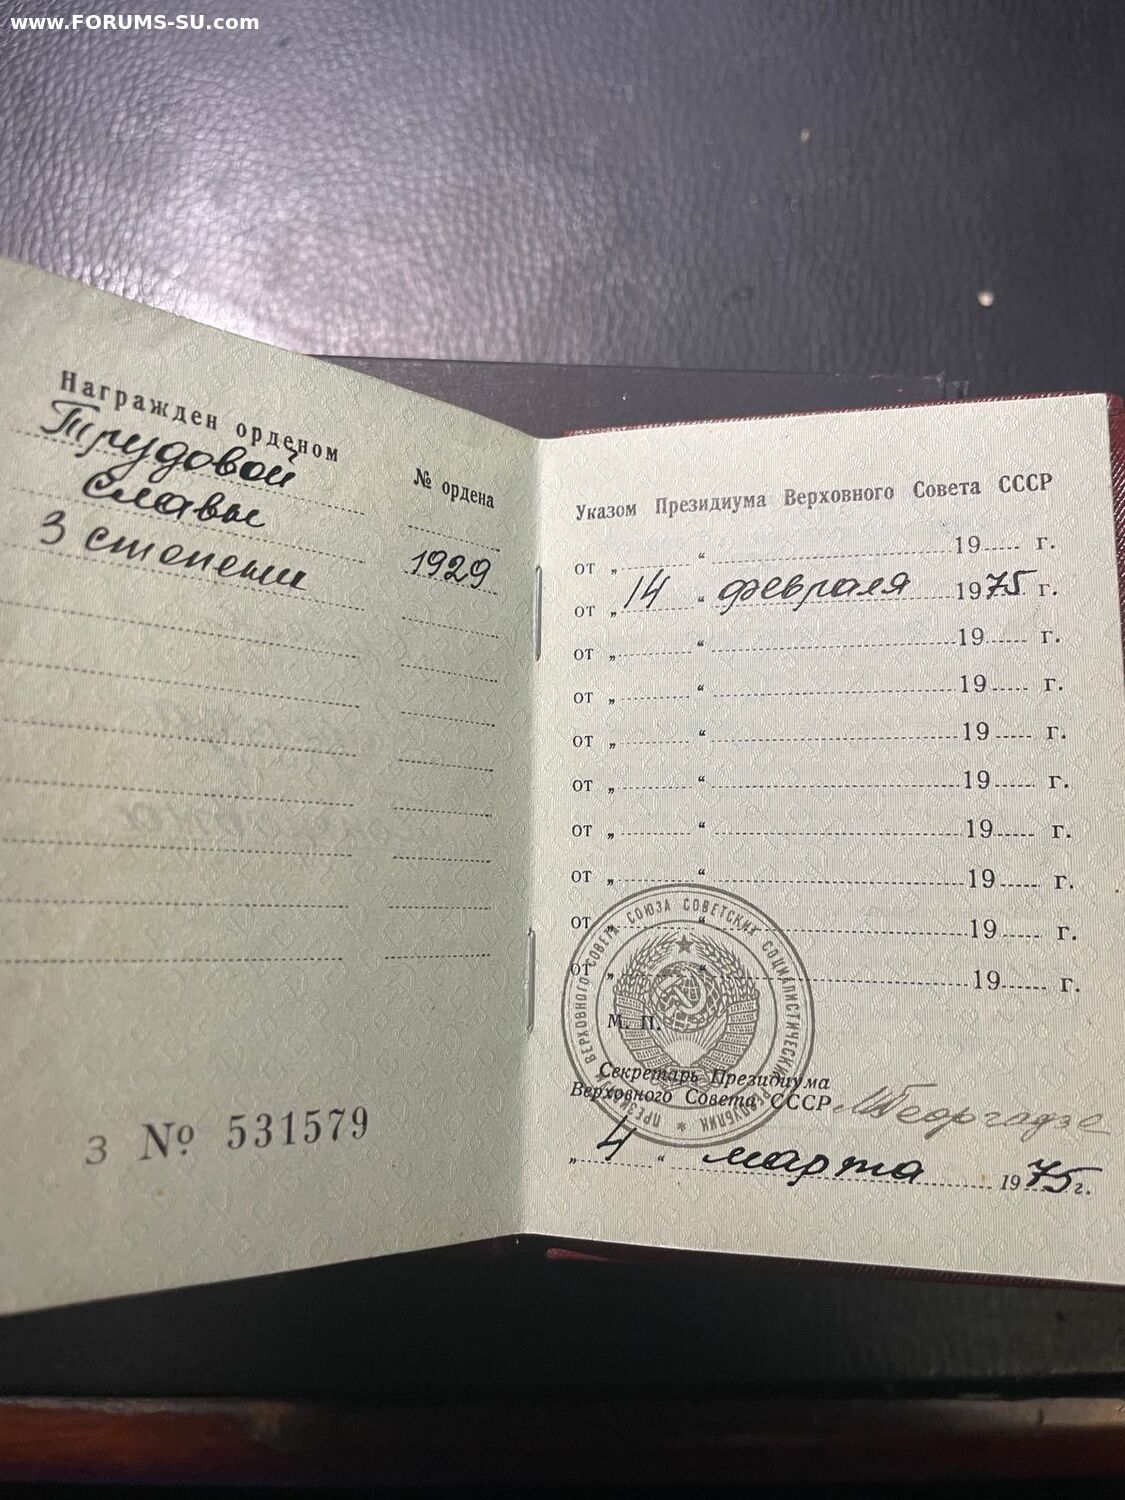 www.FORUMS-SU.com
Награжден орденом
Трудовой
Славы
3 степени
№ ордена
1929
З № 531579
Указом Президиума Верховного Совета СССР
от „ “ 19 г.
от „ 14 “ февраля 1975 г.
от „ “ 19 г.
от „ “ 19 г.
от „ “ 19 г.
от „ “ 19 г.
от „ “ 19 г.
от „ “ 19 г.
от „ “ 19 г.
от „ “ 19 г.
ПРЕЗИДИУМ ВЕРХОВНОГО СОВЕТА СОЮЗА СОВЕТСКИХ СОЦИАЛИСТИЧЕСКИХ РЕСПУБЛИК
М. П.
Секретарь Президиума
Верховного Совета СССР МГеоргадзе
„ 4 “ марта 1975 г.